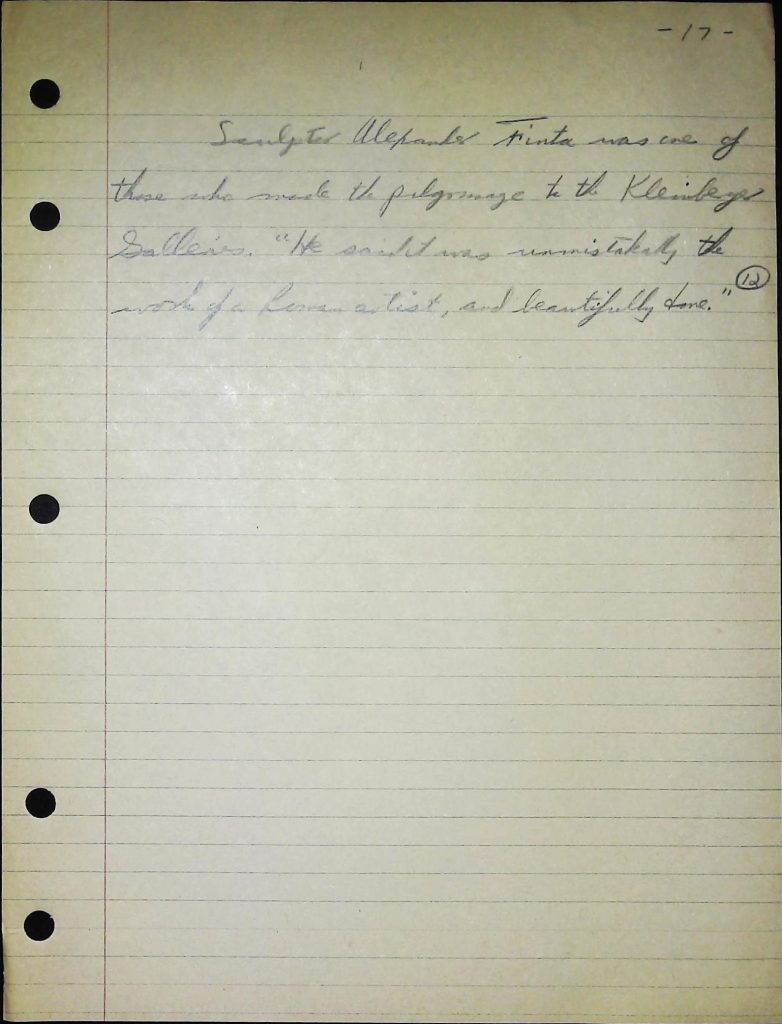 -17-
Sculptor Alexander Finta was one of
those who made the pilgrimage to the Kleinberger
Galleries. "He said it was unmistakably the
work of a Roman artist, and beautifully done." (12)